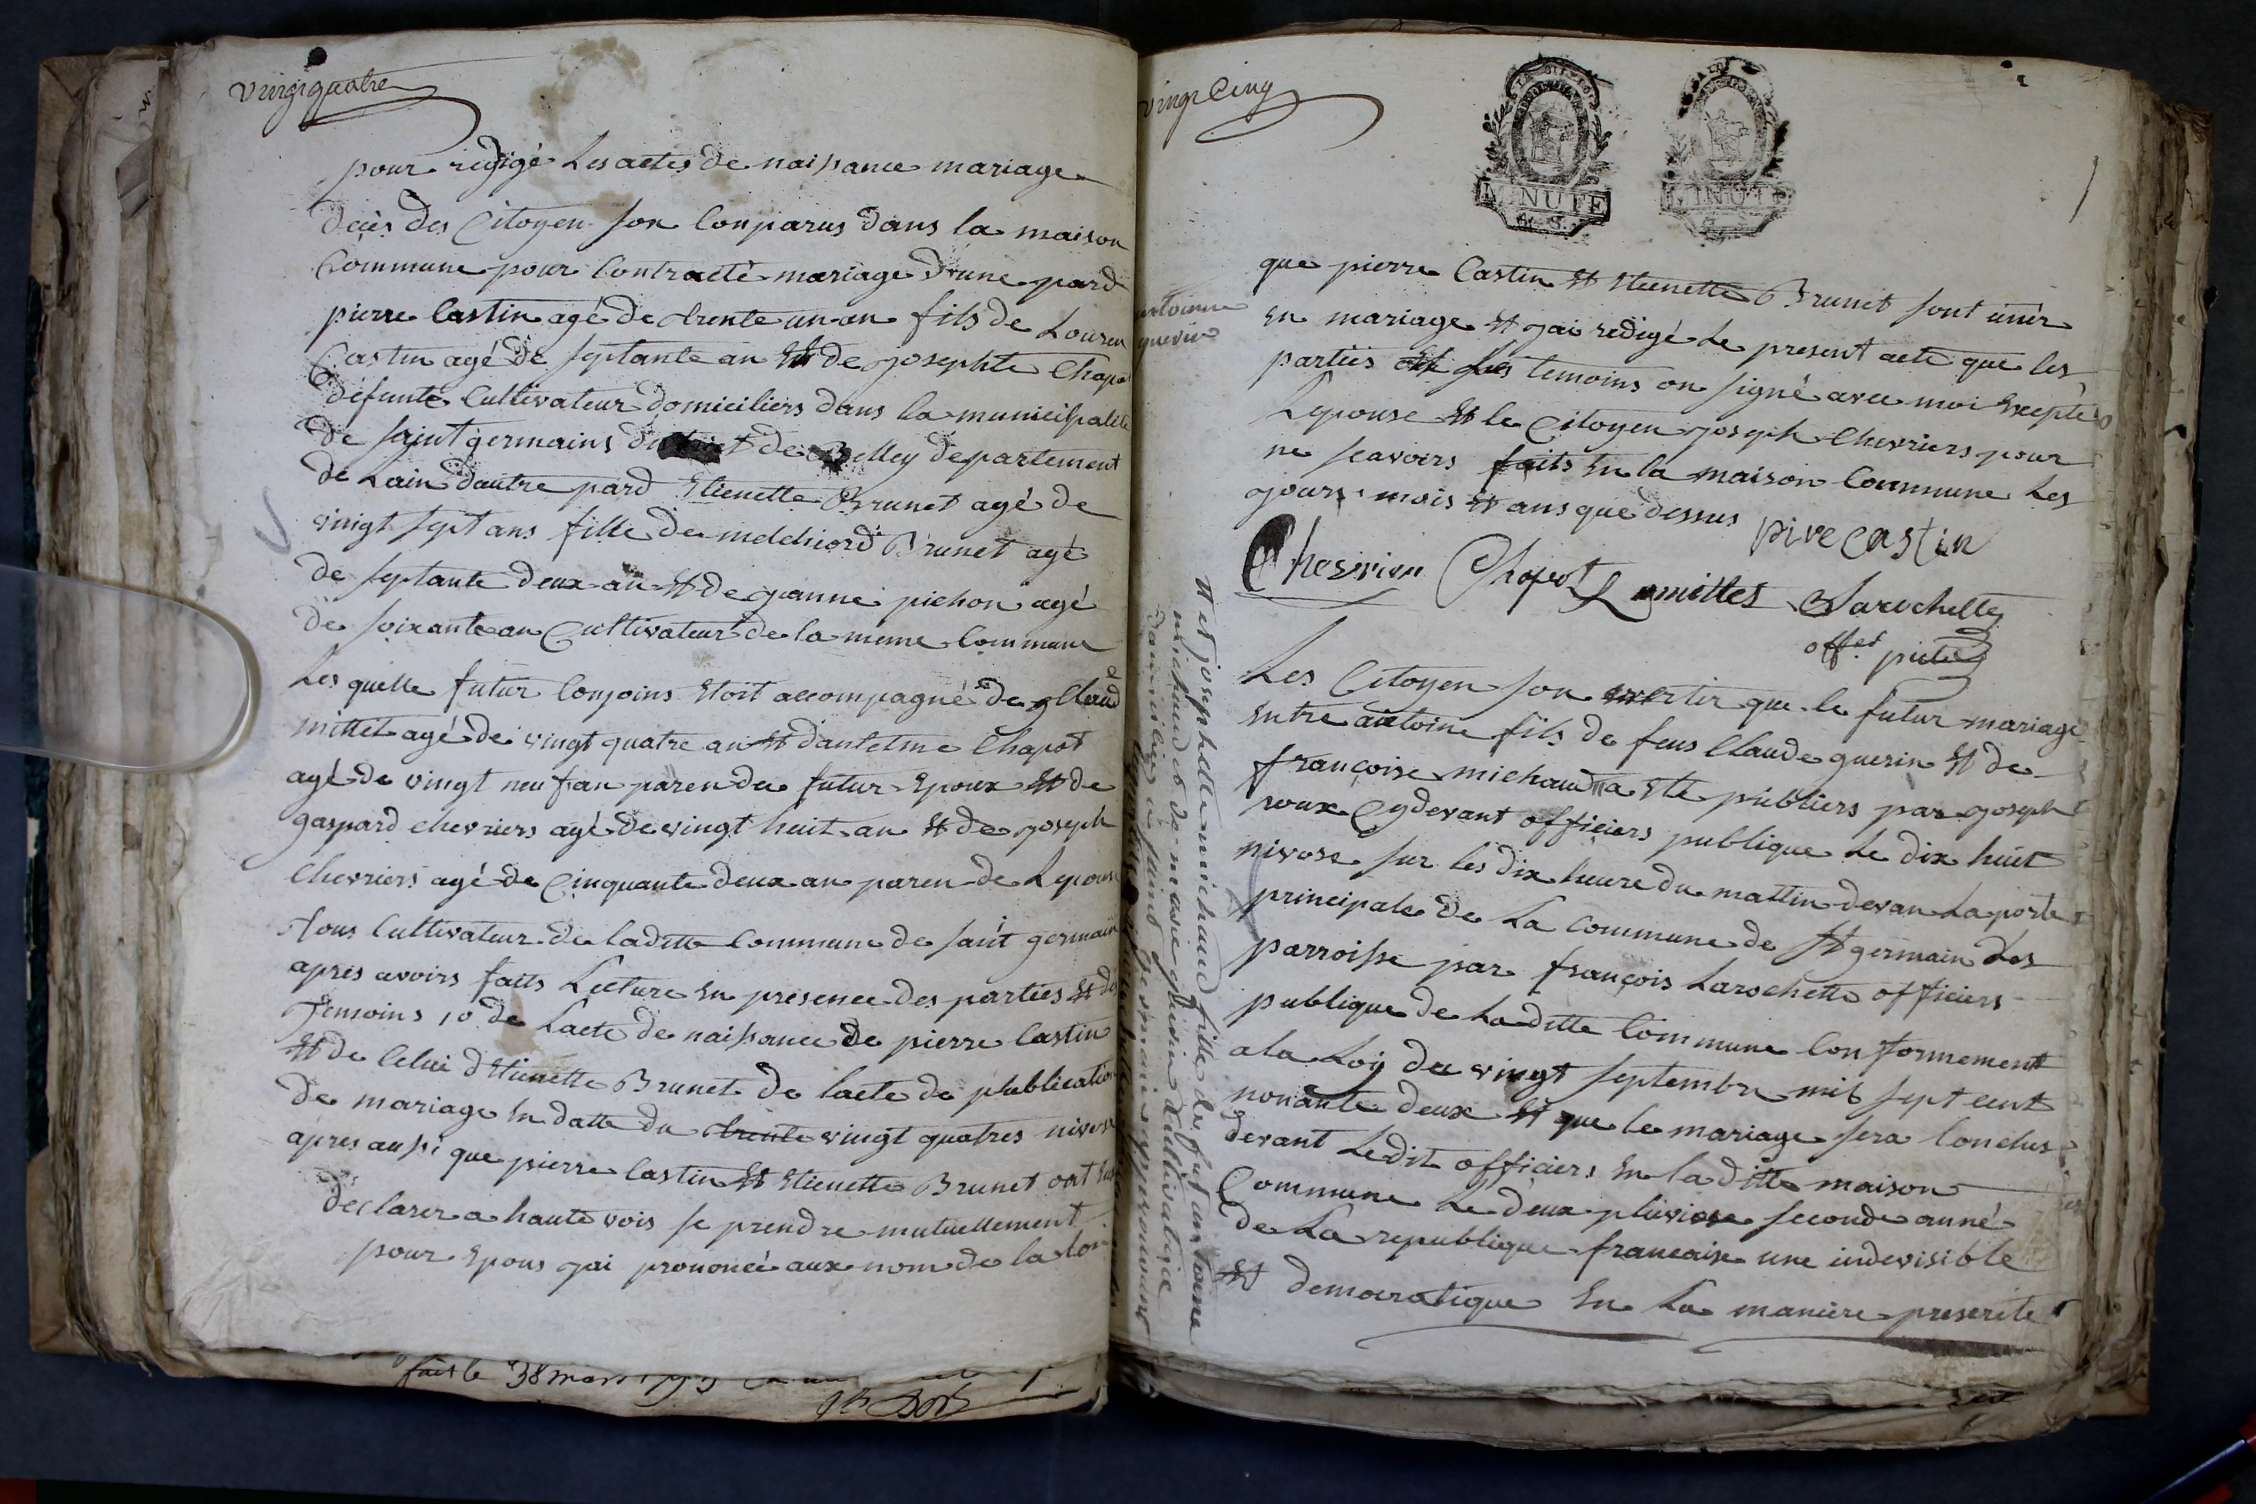 vingt quatre
pour redigé Les actes de naissance mariage
decès des Citoyen son Comparus dans la maison
Commune pour Contracté mariage d'une pard
pierre Castin agé de trente un an fils de Louren
Castin agé de septante an et de josephte Chapot
défunte Cultivateur domiciliers dans la municipalité
de saint germains de Belley departement
de Lain d'autre pard Etienette Brunet agé de
vingt sept ans fille de melchiord Brunet agé
de septante deux an et de jeanne pichon agé
de soixante an Cultivateur de la meme Commune
Les quelle futur Conjoins Etoit accompagné de Claude
mittet agé de vingt quatre an et d'antelme Chapot
agé de vingt neuf an paren du futur Epoux et de
gaspard chevriers agé de vingt huit an et de joseph
Chevriers agé de Cinquante deux an paren de Lepouse
tous Cultivateur de laditte Commune de saint germain
apres avoirs faits Lecture En presence des parties et des
Temoins 1o de Lacte de naissance de pierre Castin
et de Celui d'Etienette Brunet de lacte de publication
de mariage En datte du trente vingt quatres nivose
apres aussi que pierre Castin et Etienette Brunet ont
declarer a haute vois se prendre mutuellement
pour Epous jai prononcé aux nom de la loi
fait le
vingt Cinq
MINUTE
MINUTE
antoinne
guerin
que pierre Castin et Etienette Brunet sont unir
En mariage et jai redigé Le present acte que les
parties et les temoins on signé avec moi Excepté
Lepouse et le Citoyen joseph Chevriers pour
ne scavoirs faits En la maison Commune Les
jours mois et ans que dessus
pire castin
Chevrier Chapot mittet Larochette
off.er
Les Citoyen son avertir que le futur mariage
Entre antoine fils de feus Claude guerin et de
françoise michaud a Eté publiers par joseph
roux Cydevant officiers publique Le dix huit
nivose sur les dix heure du mattin devan La porte
principale de La Commune de St germain Les
parroisse par françois Larochette officiers
publique de Laditte Commune Conformement
a la Loy du vingt septembre mil sept cent
nonante deux et que le mariage sera Conclus
devant Ledit officiers En la ditte maison
Commune Le deux pluviose seconde anné
de La republique francaise une indevisible
et democratique En La maniere prescrite
et josephette michaud fille de
michaud et de guerin Cultivatrice
domiciliers a saint germain